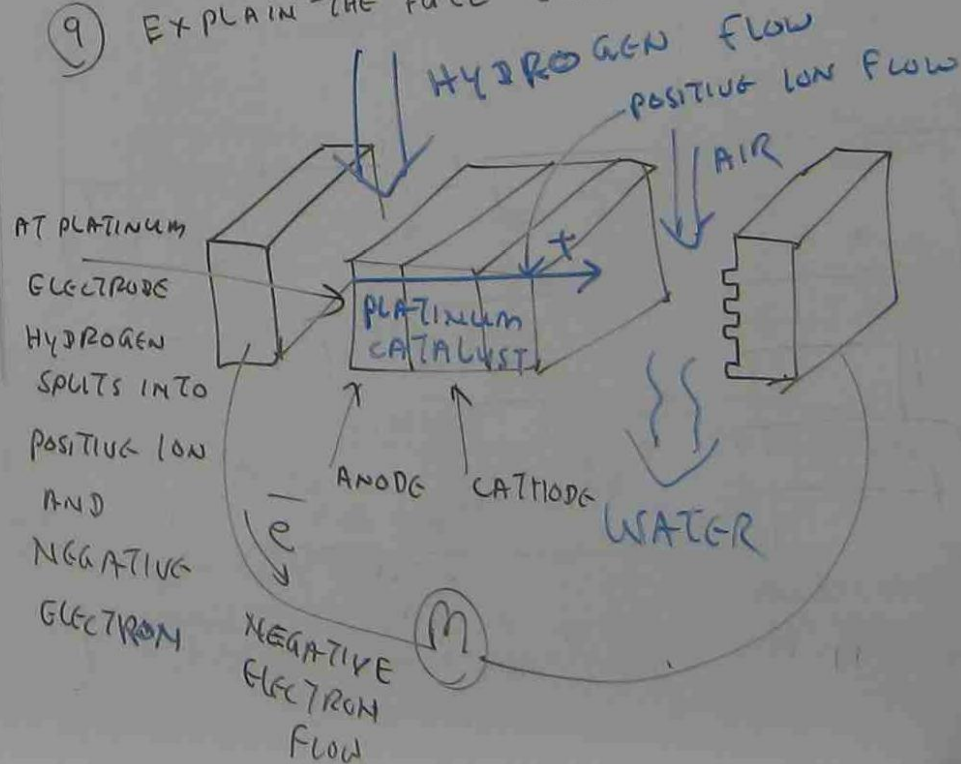 9 EXPLAIN THE
HYDROGEN FLOW
POSITIVE ION FLOW
AIR
AT PLATINUM
ELECTRODE
HYDROGEN
SPLITS INTO
POSITIVE ION
AND
NEGATIVE
ELECTRON
+
PLATINUM
CATALYST
ANODE CATHODE
WATER
e
NEGATIVE
ELECTRON
FLOW
M